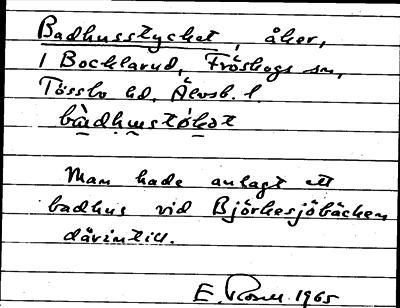 Badhusstycket, åker,
i Bocklarud, Fröskogs sn,
Tössbo hd, Älvsb. l.
bàdhustókət
Man hade anlagt ett
badhus vid Björkesjöbäcken
därintill.
E. Rosell 1965